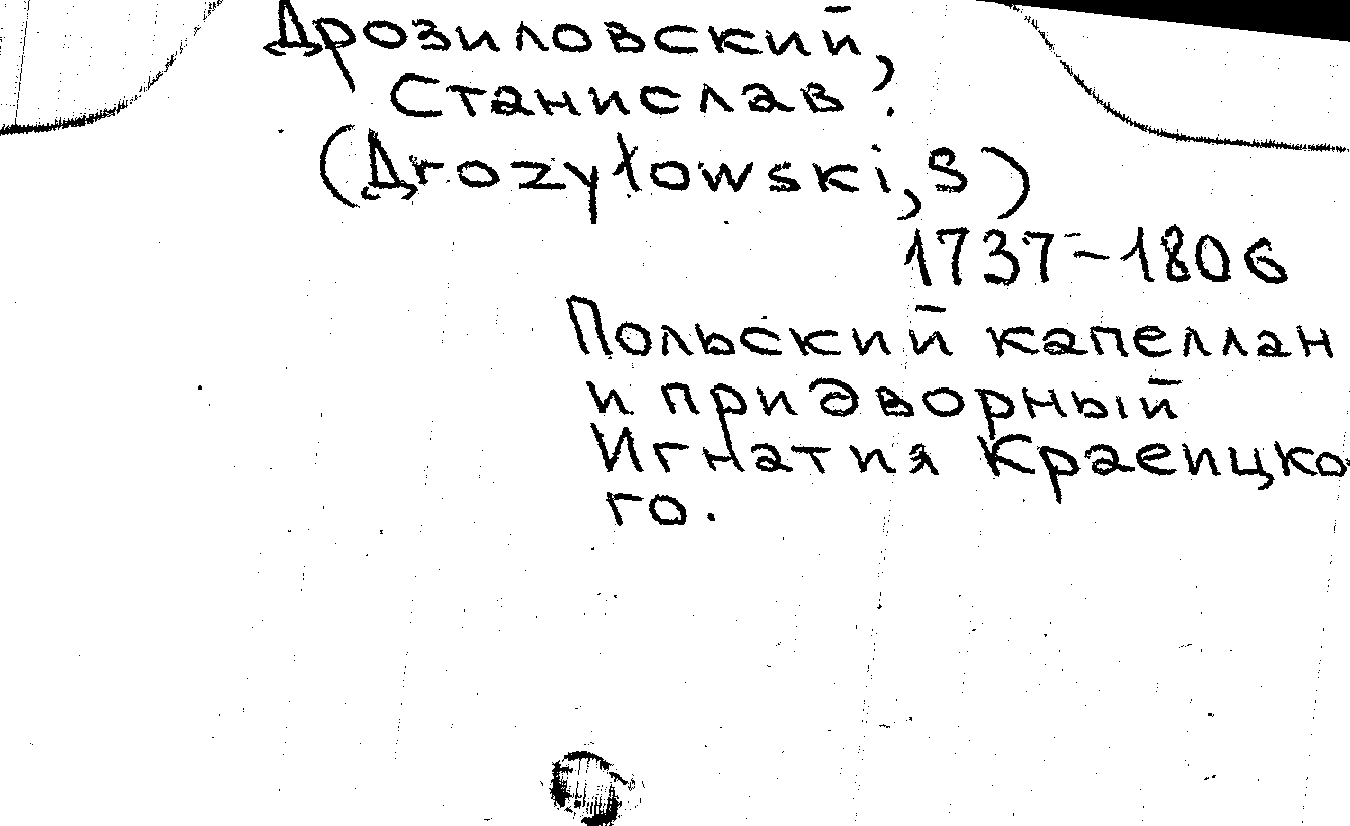 Дрозиловский,
Станислав.
(Дrozyłowski, S)
1737-1806
Польский капеллан
и придворный
Игнатия Краеицко-
го.